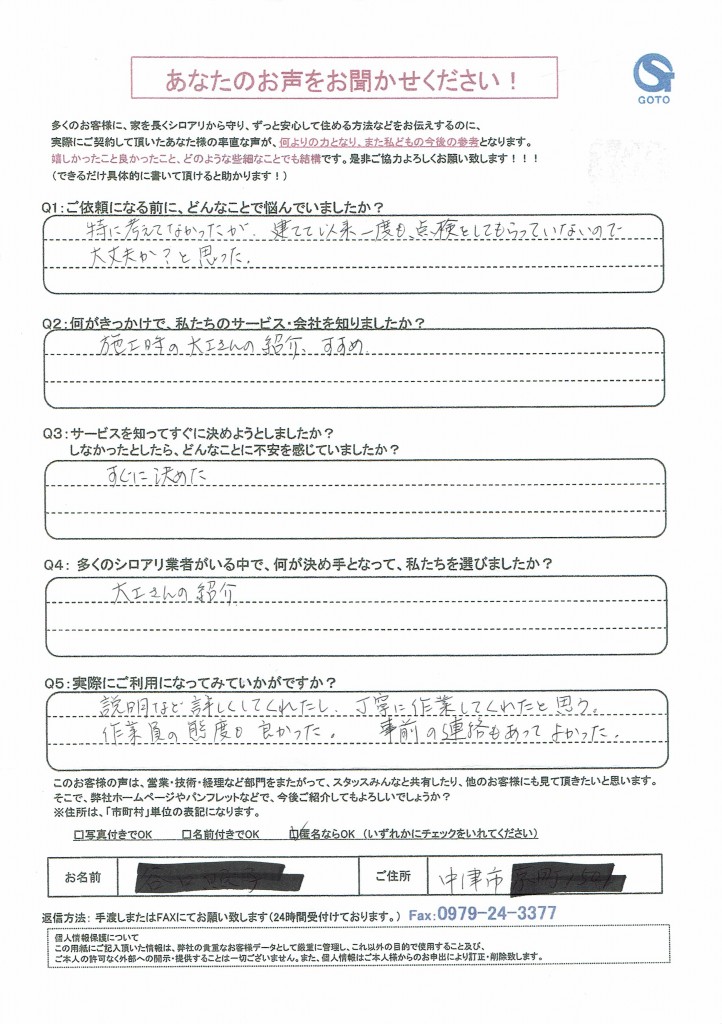 あなたのお声をお聞かせください！
GOTO
多くのお客様に、家を長くシロアリから守り、ずっと安心して住める方法などをお伝えするのに、
実際にご契約して頂いたあなた様の率直な声が、何よりの力となり、また私どもの今後の参考となります。
嬉しかったこと良かったこと、どのような些細なことでも結構です。是非ご協力よろしくお願い致します！！！
（できるだけ具体的に書いて頂けると助かります！）
Q1：ご依頼になる前に、どんなことで悩んでいましたか？
特に考えてなかったが、建てて以来一度も、点検をしてもらっていないので
大丈夫か？と思った。
Q2：何がきっかけで、私たちのサービス・会社を知りましたか？
施工時の大工さんの紹介、すすめ
Q3：サービスを知ってすぐに決めようとしましたか？
しなかったとしたら、どんなことに不安を感じていましたか？
すぐに決めた
Q4： 多くのシロアリ業者がいる中で、何が決め手となって、私たちを選びましたか？
大工さんの紹介
Q5：実際にご利用になってみていかがですか？
説明など詳しくしてくれたし、丁寧に作業してくれたと思う。
作業員の態度も良かった。 事前の連絡もあってよかった。
このお客様の声は、営業・技術・経理など部門をまたがって、スタッスみんなと共有したり、他のお客様にも見て頂きたいと思います。
そこで、弊社ホームページやパンフレットなどで、今後ご紹介してもよろしいでしょうか？
※住所は、「市町村」単位の表記になります。
□写真付きでOK □名前付きでOK ☑匿名ならOK （いずれかにチェックをいれてください）
お名前 ご住所 中津市
返信方法： 手渡しまたはFAXにてお願い致します（24時間受付けております。） Fax：0979-24-3377
個人情報保護について
この用紙にご記入頂いた情報は、弊社の貴重なお客様データとして厳重に管理し、これ以外の目的で使用すること及び、
ご本人の許可なく外部への開示・提供することは一切ございません。また、個人情報はご本人様からのお申出により訂正・削除致します。